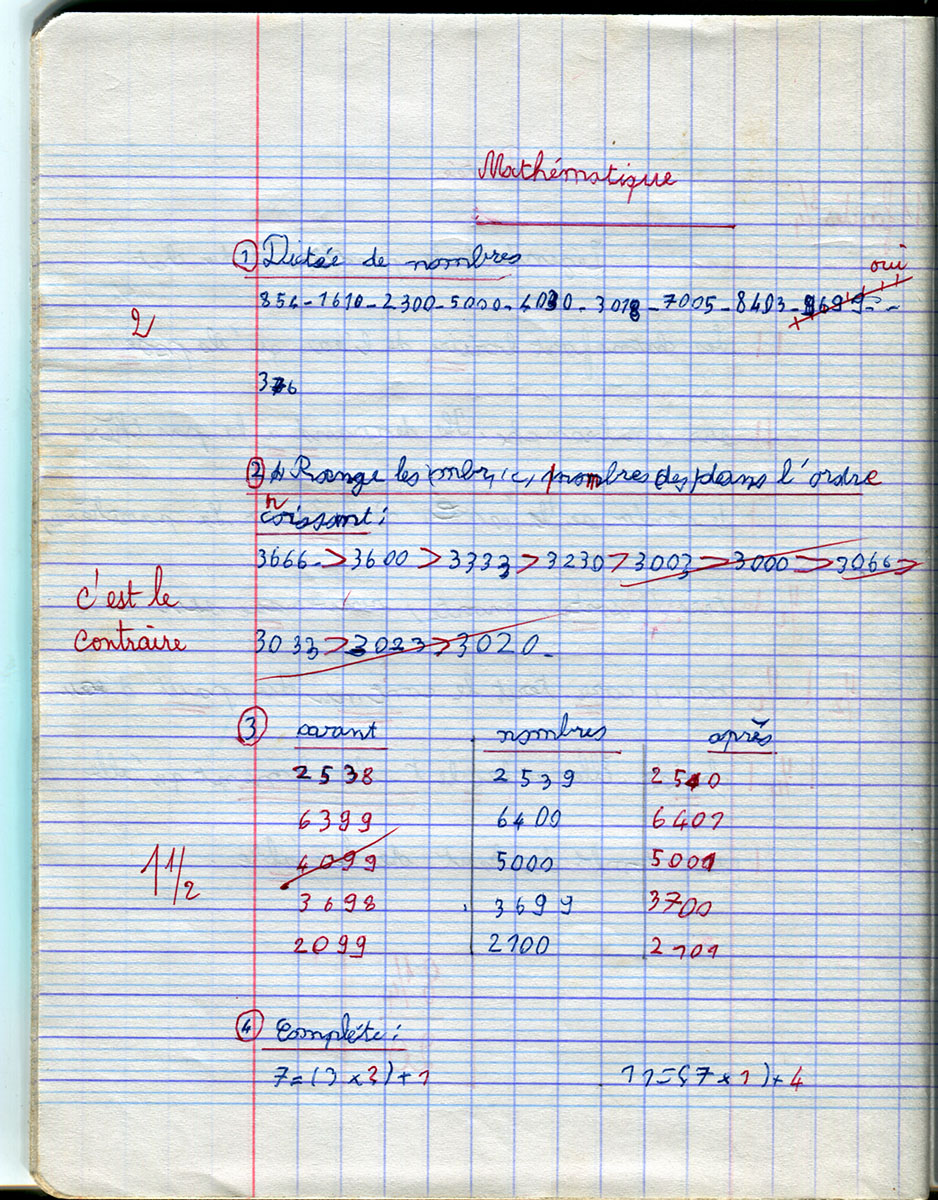 Mathématique
① Dictée de nombres
oui
854 - 1610 - 2300 - 5000 - 4030 - 3018 - 7005 - 8403 - 9699 - -
2
376
② Range les nombres dans l'ordre
croissant :
3666 > 3600 > 3333 > 3230 > 3003 > 3000 > 3066 >
c'est le
contraire
3033 > 3023 > 3020 -
③ avant nombres après
2538 2539 2540
6399 6400 6401
4099 5000 5001
1 1/2
3698 3699 3700
2099 2100 2101
④ Complète :
7 = (3 x 2) + 1 11 = (7 x 1) + 4